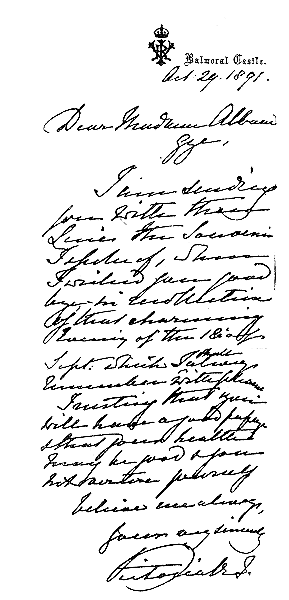 Balmoral Castle.
Oct 29. 1891.
Dear Madame Albani
Gye,
I am sending
you with these
Lines the Souvenir
I spoke of, when
I wished you good
bye in recollection
of that charming
Evening of the 18 of
Sept. which I shall always
remember with pleasure
Trusting that you
will have a good passage
& that your health
may be good & you
not overtire yourself
believe me always,
yours very sincerely
Victoria R. I.